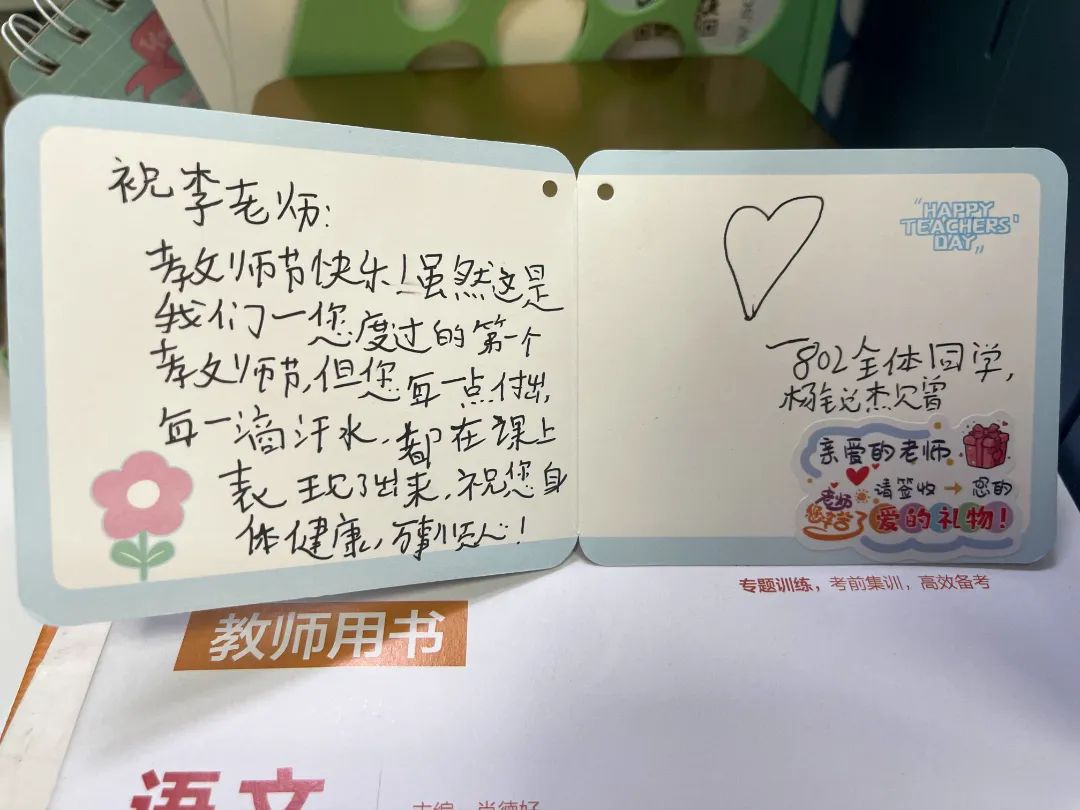 祝李老师:
教师节快乐!虽然这是
我们一您度过的第一个
教师节,但您每一点付出,
每一滴汗水,都在课上
表现了出来,祝您身
体健康,万事顺心!
"HAPPY
TEACHERS'
DAY"
—802全体同学,
杨锐杰
亲爱的老师
请签收→您的
老师
您辛苦了
爱的礼物!
专题训练,考前集训,高效备考
教师用书
语文
主编 肖德好